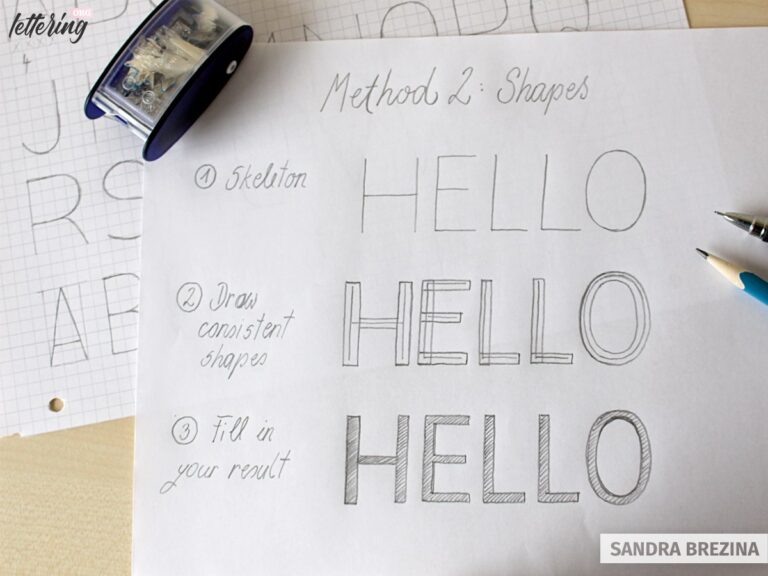 lettering.org
J
R S
A B
Method 2: Shapes
1 Skeleton
HELLO
2 Draw
consistent
shapes
HELLO
3 Fill in
your result
HELLO
SANDRA BREZINA